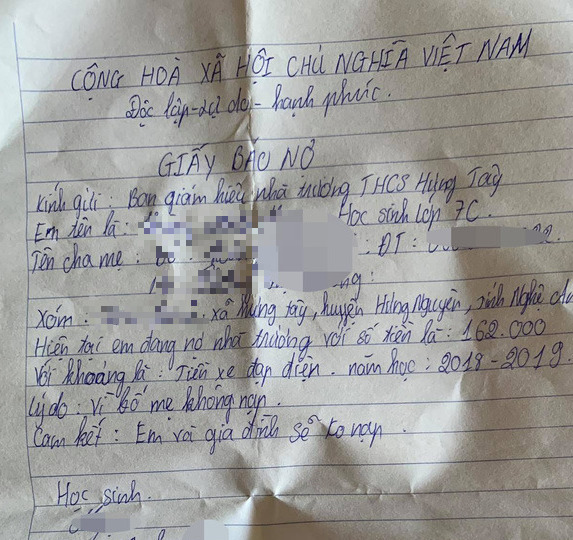 CỘNG HOÀ XÃ HỘI CHỦ NGHĨA VIỆT NAM
Độc lập - tự do - hạnh phúc.
GIẤY BÁO NỢ
Kính gửi: Ban giám hiệu nhà trường THCS Hưng Tây
Em tên là: Học sinh lớp 7C.
Tên cha mẹ: ĐT:
Xóm: xã Hưng tây, huyện Hưng Nguyên, tỉnh Nghệ An
Hiện tại em đang nợ nhà trường với số tiền là: 162.000
Với khoảng là: Tiền xe đạp điện. năm học: 2018-2019.
Lý do: Vì bố mẹ không nạp.
Cam kết: Em và gia đình sẽ ko nạp.
Học sinh.